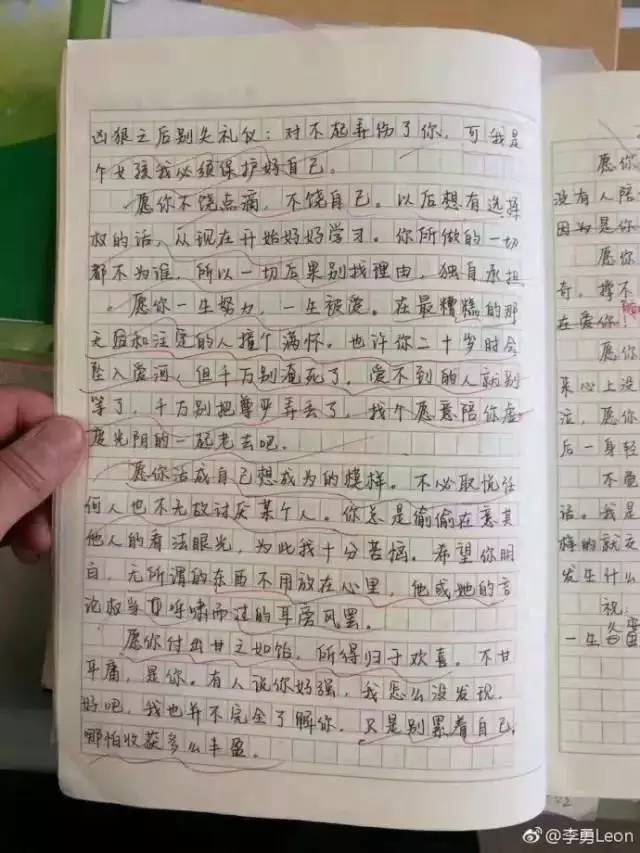 凶狠之后别失礼仪：对不起弄伤了你，可我是
个女孩我必须保护好自己。
愿你不饶点滴，不饶自己。以后想有选择
权的话，从现在开始好好学习。你所做的一切
都不为谁，所以一切后果别找理由，独自承担。
愿你一生努力，一生被爱。在最糟糕的那
天回和注定的人撞个满怀。也许你二十岁时会
坠入爱河，但千万别淹死了，爱不到的人就别
等了，千万别把尊严弄丢了，找个愿意陪你虚
度光阴的一起老去吧。
愿你活成自己想成为的模样。不必取悦任
何人也不无故讨厌某个人。你总是偷偷在意其
他人的看法眼光，为此我十分苦恼。希望你明
白，无所谓的东西不用放在心里，他或她的言
论权当只呼啸而过的耳旁风罢。
愿你付出甘之如饴，所得归于欢喜。不甘
平庸，是你。有人说你好强，我怎么没发现，
好吧，我也并不完全了解你，只是别累着自己，
哪怕收获多么丰盈。
愿你
没有人陪
因为是你
愿你
奇，撑不
在爱你！
愿你
来心上没
泣，愿你
后一身轻
不
话。我是
的就
发生什么
祝：
一生
@李勇Leon